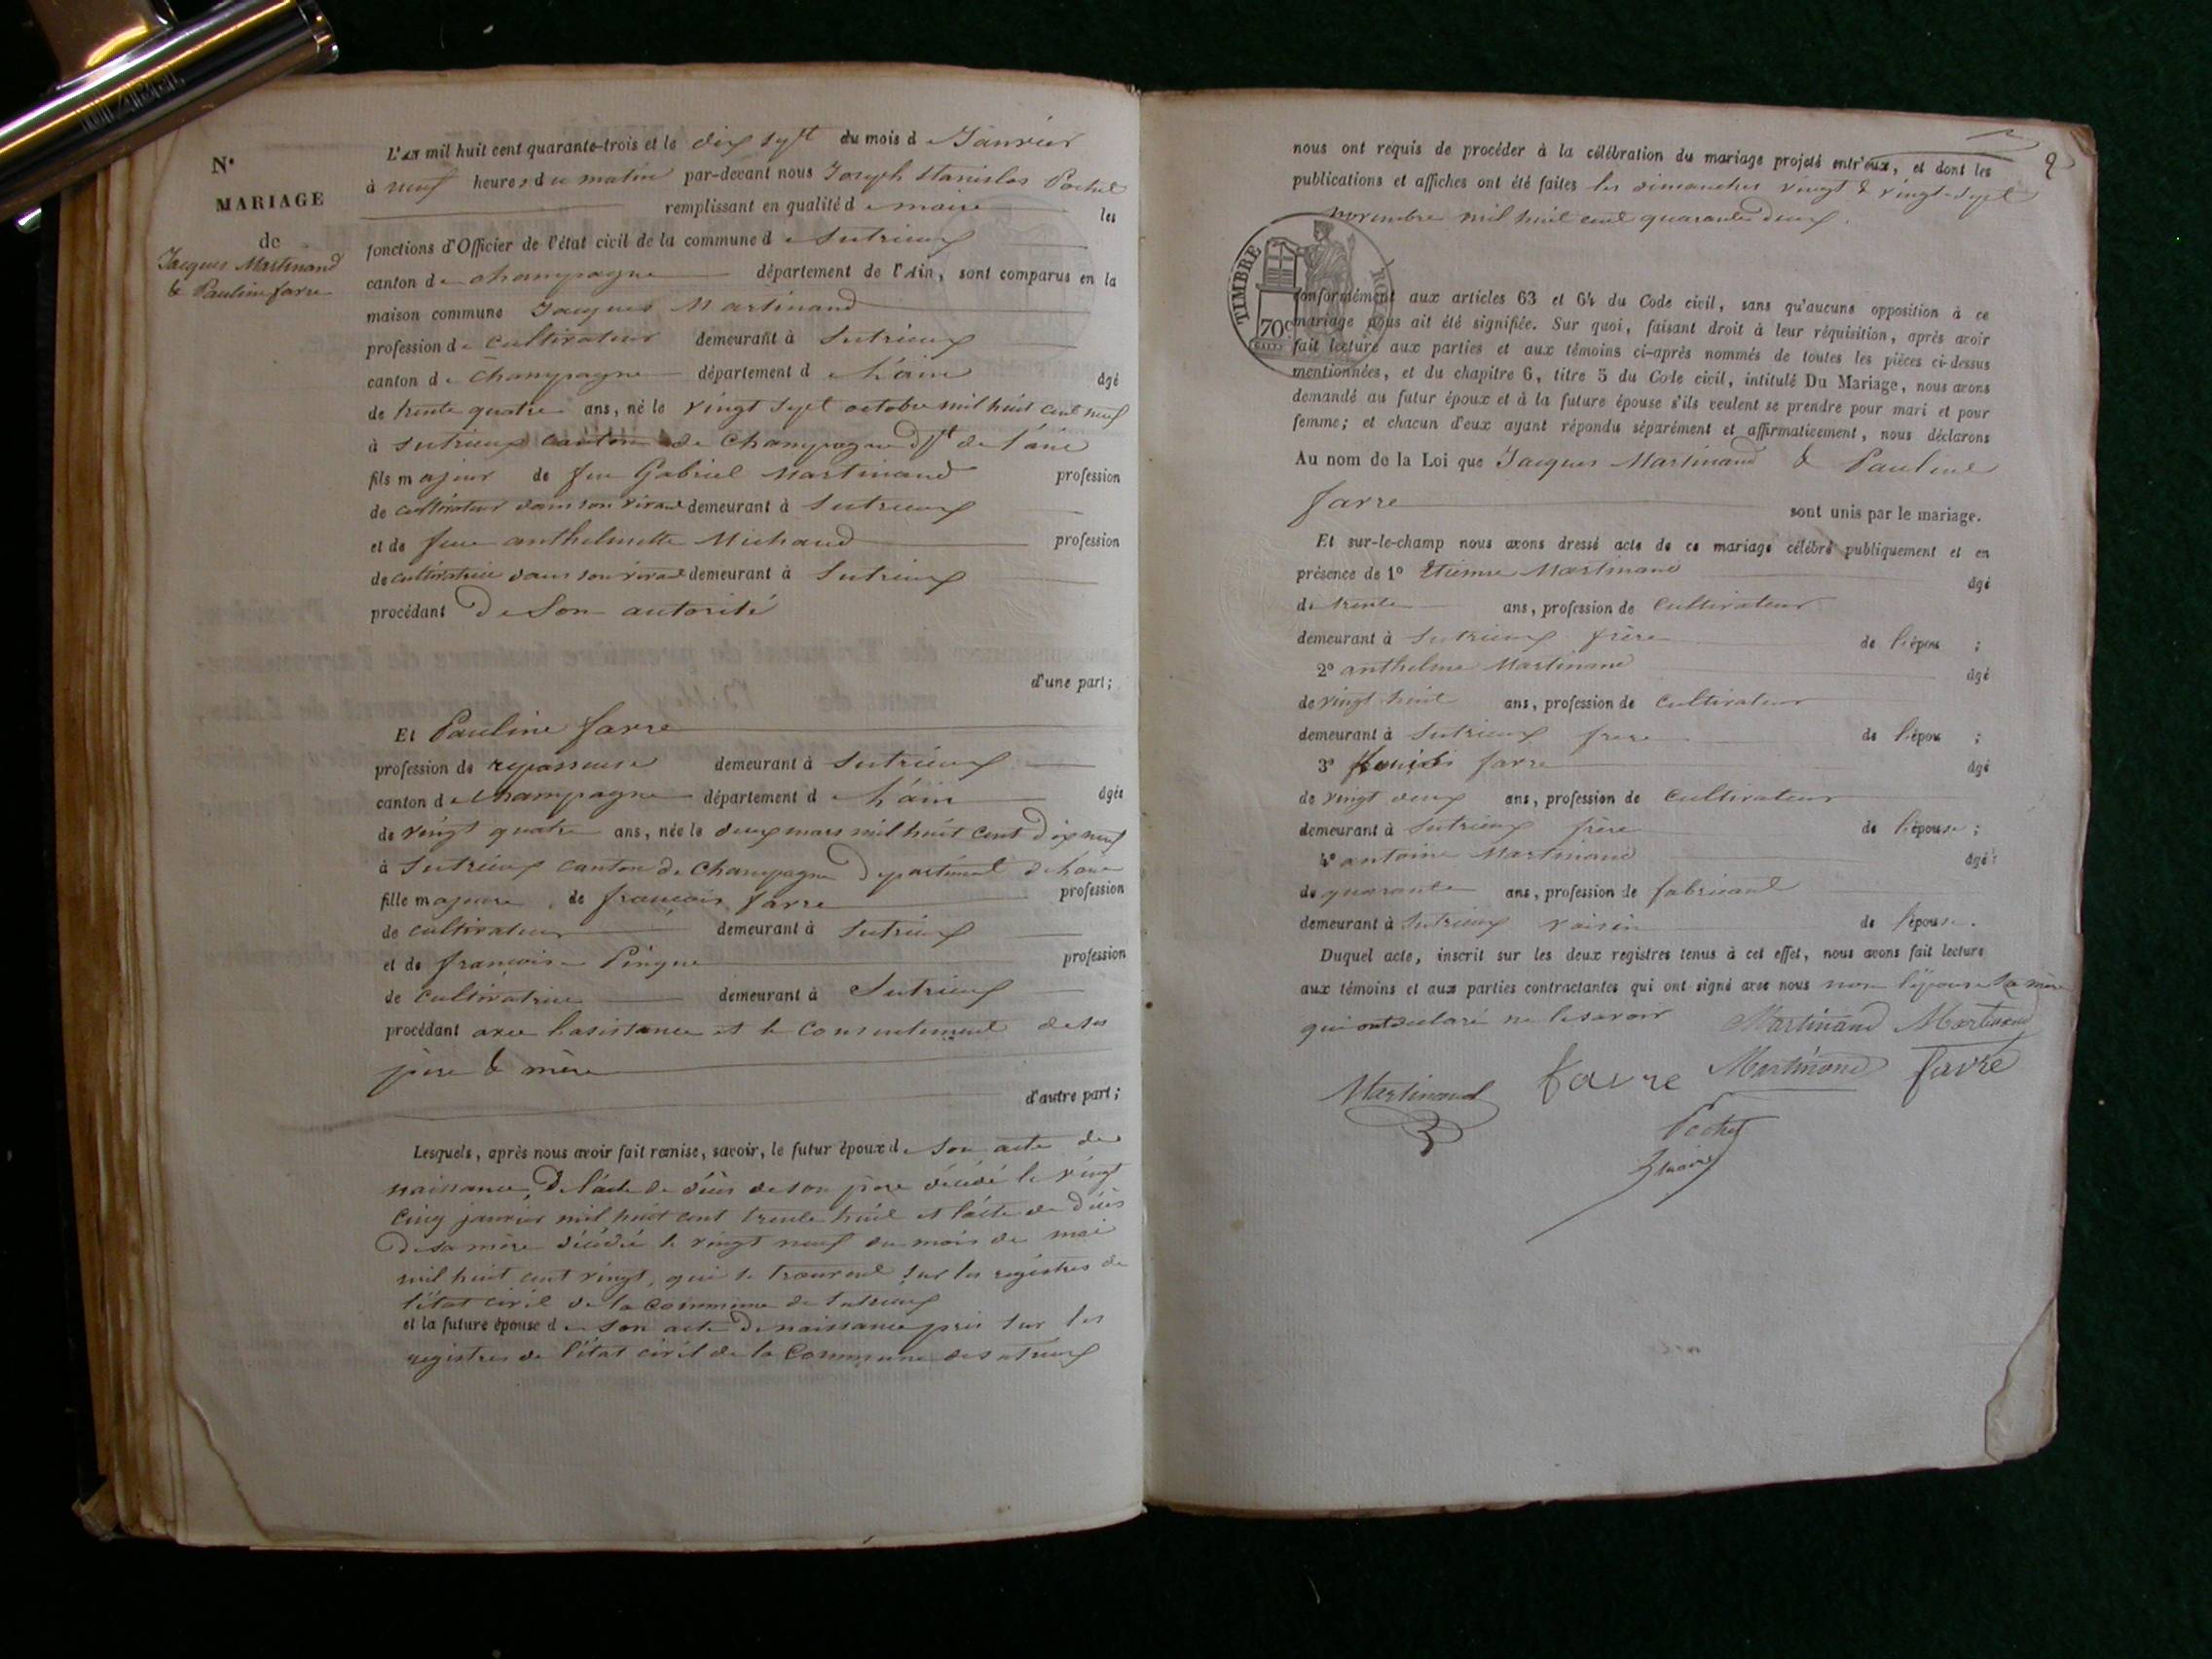 N°
MARIAGE
de
Jacques Martinand
& Pauline favre
L'an mil huit cent quarante-trois et le dix sept du mois d Janvier
à neuf heures du matin par-devant nous Joseph Stanislas Pochet
remplissant en qualité de maire les
fonctions d'Officier de l'état civil de la commune de Sutrieux
canton de champagne département de l'Ain, sont comparus en la
maison commune Jacques Martinand
profession de cultivateur demeurant à Sutrieux
canton de Champagne département de l'ain âgé
de trente quatre ans, né le vingt sept octobre mil huit cent neuf
à Sutrieux canton de Champagne dpt de l'ain
fils majeur de feu Gabriel Martinand profession
de cultivateur dans son vivant demeurant à Sutrieux
et de feue anthelmette Michaud profession
de cultivatrice dans son vivant demeurant à Sutrieux
procédant de Son autorité
d'une part;
Et Pauline favre
profession de repasseuse demeurant à Sutrieux
canton de champagne département de l'ain âgée
de vingt quatre ans, née le deux mars mil huit cent dix neuf
à Sutrieux canton de Champagne département de l'ain
fille majeure de françois favre profession
de cultivateur demeurant à Sutrieux
et de françoise Pingue profession
de cultivatrice demeurant à Sutrieux
procédant avec l'assistance et le consentement de ses
père & mère
d'autre part;
Lesquels, après nous avoir fait remise, savoir, le futur époux de son acte de
naissance, De l'acte de décès de son père décédé le vingt
cinq janvier mil huit cent trente huit et l'acte de décès
De sa mère décédée le vingt neuf du mois de mai
mil huit cent vingt, qui se trouvent sur les régistres de
l'état civil de la Commune de Sutrieux
et la future épouse de son acte De naissance pris sur les
registres de l'état civil de la Commune de Sutrieux
2
nous ont requis de procéder à la célébration du mariage projeté entr'eux, et dont les
publications et affiches ont été faites les dimanches vingt & vingt-sept
novembre mil huit cent quarante deux.
TIMBRE ROYAL
70c
conformément aux articles 63 et 64 du Code civil, sans qu'aucune opposition à ce
mariage nous ait été signifiée. Sur quoi, faisant droit à leur réquisition, après avoir
fait lecture aux parties et aux témoins ci-après nommés de toutes les pièces ci-dessus
mentionnées, et du chapitre 6, titre 5 du Code civil, intitulé Du Mariage, nous avons
demandé au futur époux et à la future épouse s'ils veulent se prendre pour mari et pour
femme; et chacun d'eux ayant répondu séparément et affirmativement, nous déclarons
Au nom de la Loi que Jacques Martinand & Pauline
favre sont unis par le mariage.
Et sur-le-champ nous avons dressé acte de ce mariage célébré publiquement et en
présence de 1° Etienne Martinand âgé
de trente ans, profession de cultivateur
demeurant à Sutrieux frère de l'époux ;
2° anthelme Martinand âgé
de vingt huit ans, profession de cultivateur
demeurant à Sutrieux frère de l'époux ;
3° favre âgé
de vingt deux ans, profession de cultivateur
demeurant à Sutrieux frère de l'épouse ;
4° antoine Martinand âgé
de quarante ans, profession de fabricant
demeurant à Sutrieux voisin de l'épouse.
Duquel acte, inscrit sur les deux registres tenus à cet effet, nous avons fait lecture
aux témoins et aux parties contractantes qui ont signé avec nous non l'épouse & sa mère
qui ont déclaré ne le savoir Martinand Martinand
Martinand favre Martinand favre
Pochet
maire